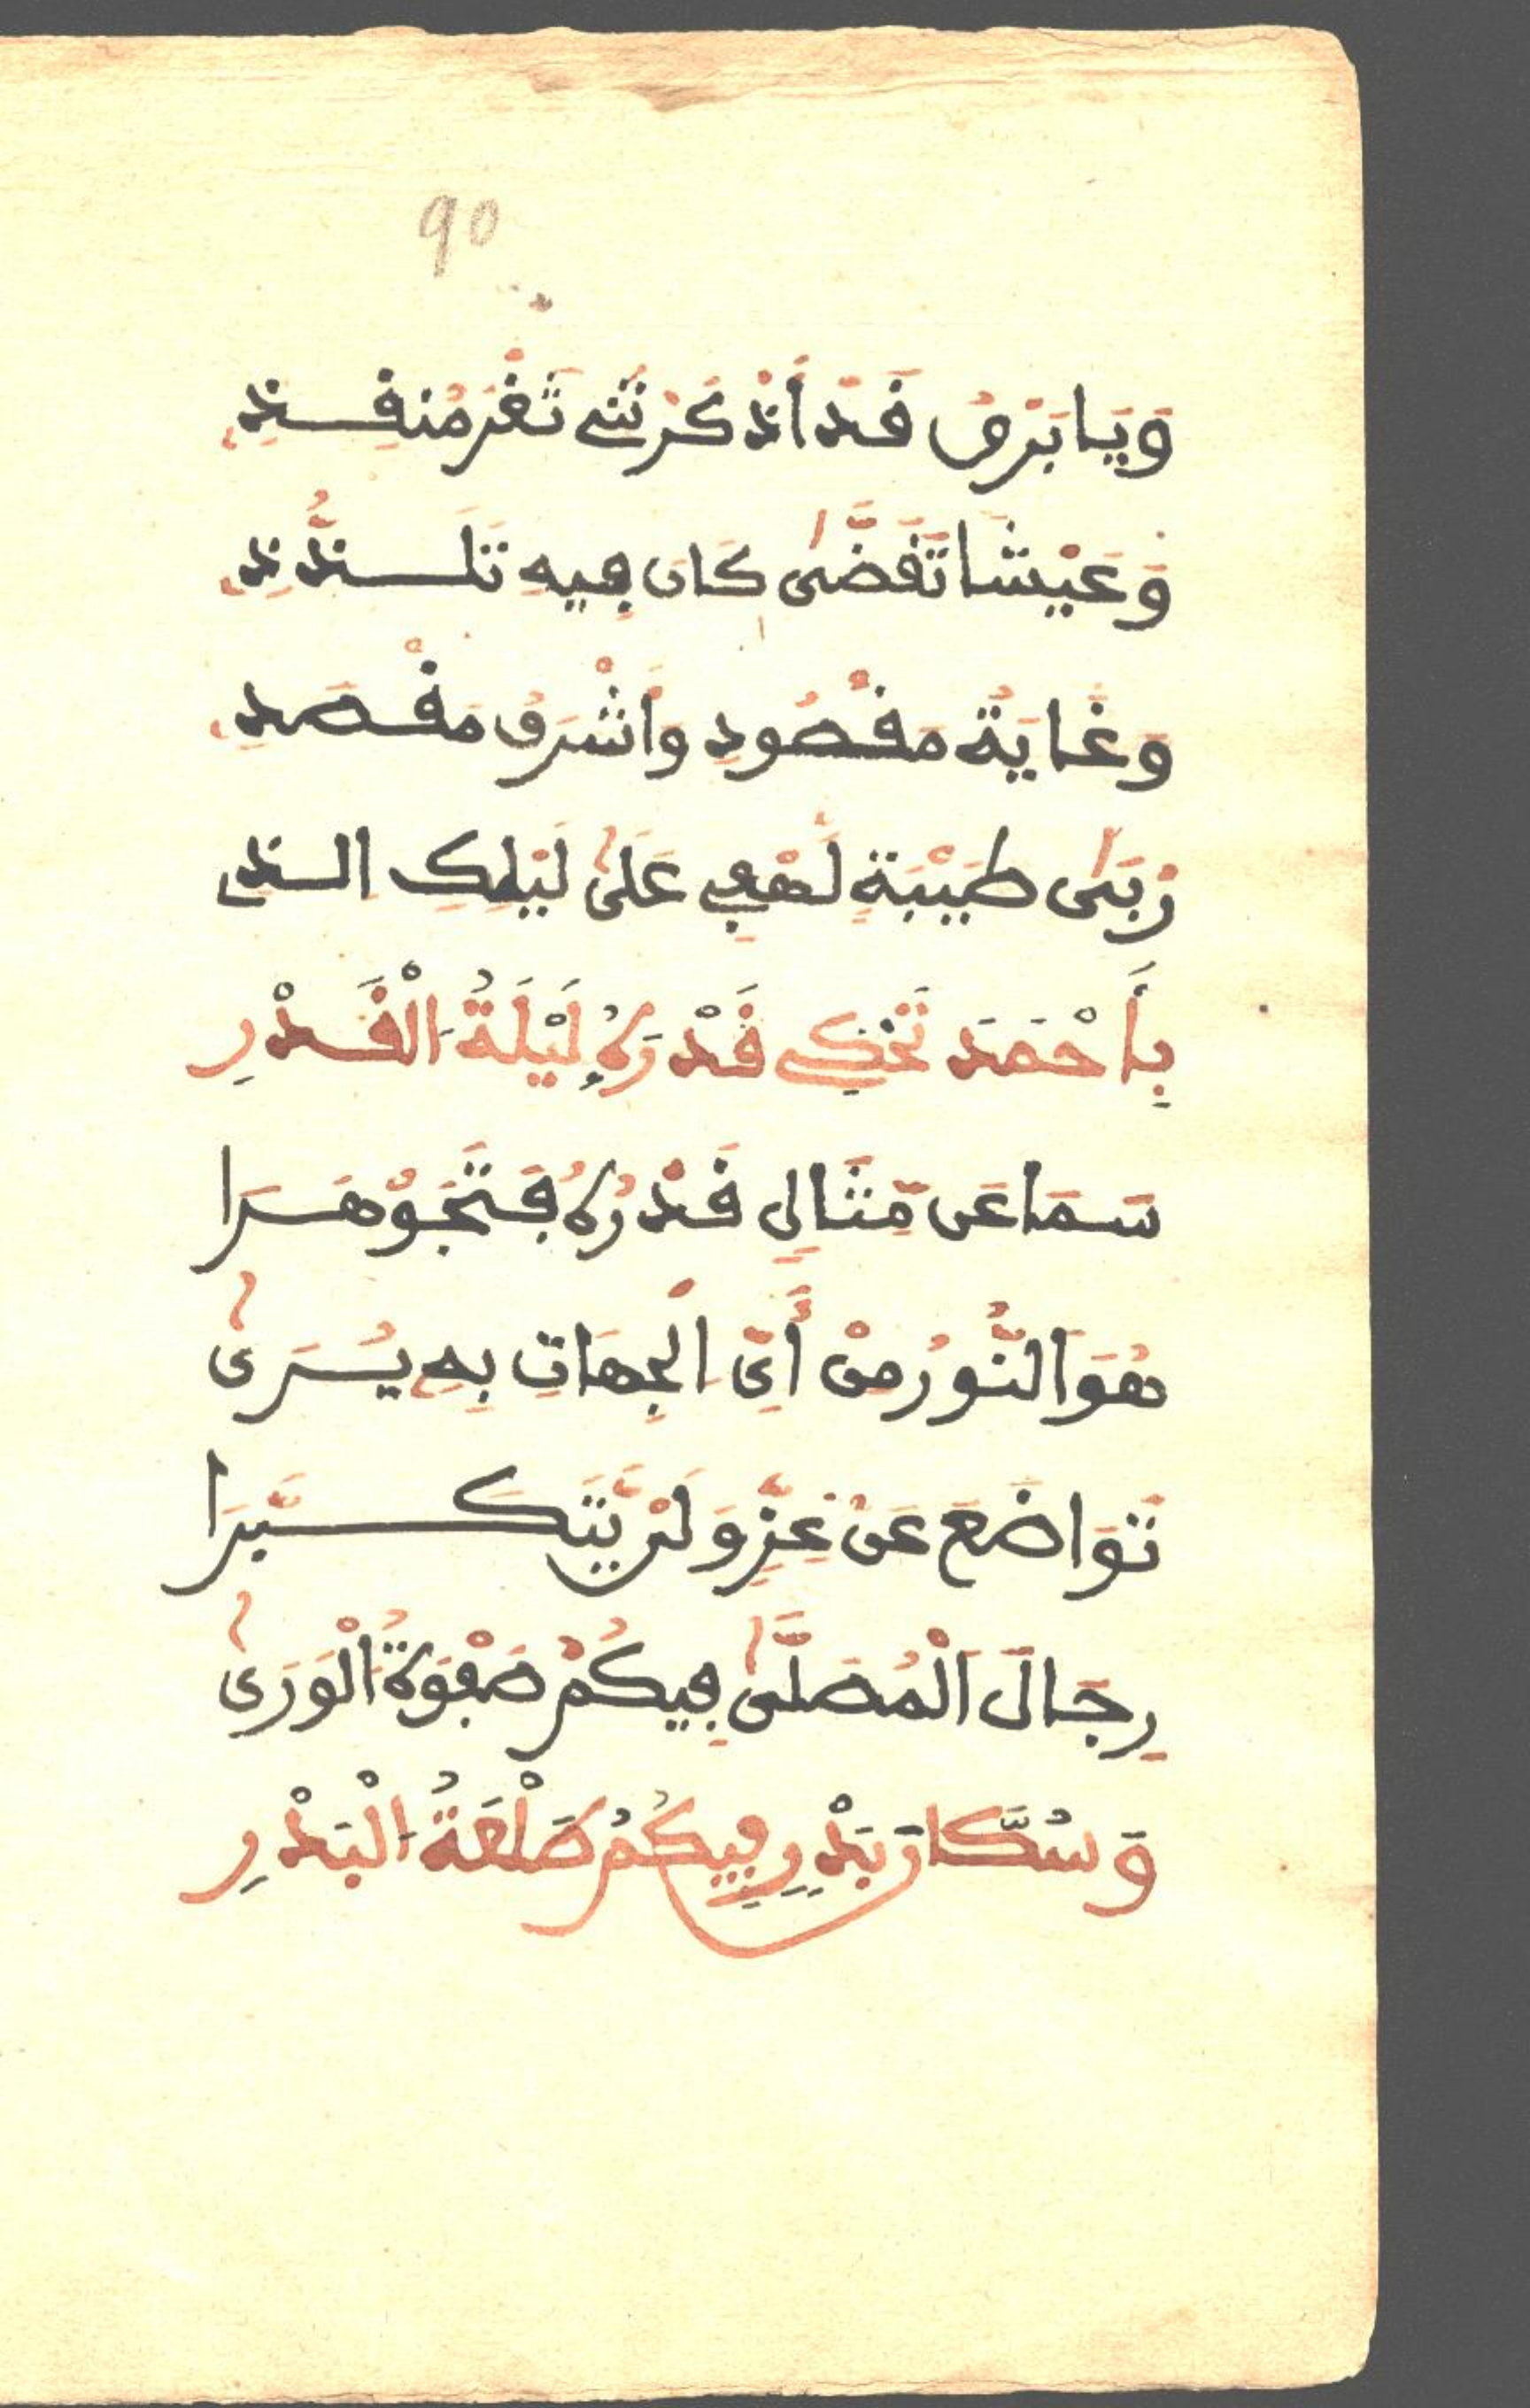 90
وَيَا بَرْقُ قَدْ أَذْكَرْتَنِي ثَغْرَ مُنْقِذِ
وَعَيْشًا تَقَضَّى كَانَ فِيهِ تَلَذُّذِ
وَغَايَةُ مَقْصُودٍ وَأَشْرَفُ مَقْصَدِ
رُبَى طَيْبَةٍ لَهْفِي عَلَى لَيْلِكِ الذِي
بِأَحْمَدَ تَحْكِي قَدْرَهُ لَيْلَةُ الْقَدْرِ
سَمَا عَن مِّثَالِي قَدْرُهُ فَتَجَوْهَرَا
هُوَ النُّورُ مِنْ أَيِّ الْجِهَاتِ بِهِ يُسَرَى
تَوَاضَعَ عَنْ عِزٍّ وَلَمْ يَتَكَبَّرَا
رِجَالَ الْمُصَلَّى فِيكُمْ صَفْوَةُ الْوَرَى
وَسُكَّانَ بَدْرٍ فِيكُمُ طَلْعَةُ الْبَدْرِ